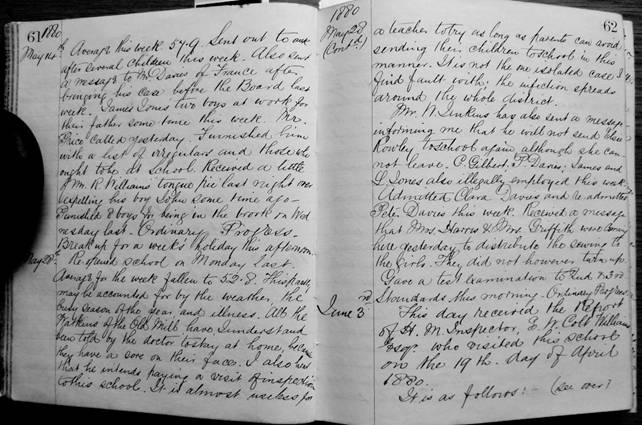 61
1880
May 14th Average this week 57.9. Sent out to and
after several children this week. Also sent
a message to Mr Davies of France after
bringing his case before the Board last
week. James Jones two boys at work for
their father some time this week. Mr.
Price called yesterday. Furnished him
with a list of irregulars and those who
ought to be at school. Received a little
of Mr. R. Williams tongue pie last night over
expelling his boy John some time ago—
Punished 8 boys for being in the brook on Wed
nesday last. Ordinary Progress.
Break up for a week's holiday this afternoon.
May 28th Re-opened school on Monday last.
Average for the week fallen to 52.8. This partly
may be accounted for by the weather, the
busy season of the year and illness. All the
Watkins of the Old Mill have I understand
been told by the doctor to stay at home, because
they have a sore on their face. I also hear
that he intends paying a visit of inspection
to this school. It is almost useless for
62
1880
May 28
(Contd)
a teacher to try as long as parents can avoid
sending their children to school in this
manner. It is not the one isolated case I
find fault with: the infection spreads
around the whole district.
Mr. W. Jenkins has also sent a message
informing me that he will not send
Rowley to school again although she can
not leave. C. Gilbert, P. Davies, James and
D. Jones also illegally employed this week.
Admitted Clara Davies and Re-admitted
Peter Davies this week. Received a message
that Mrs Harris & Mrs. Griffith were coming
here yesterday to distribute the sewing to
the girls. They did not however turn up.
Gave a test examination to 2nd & 3rd
Standards this morning. Ordinary Progress
June 3rd This day received the Report
of H. M Inspector, E. W. Colt Williams
Esqr. who visited this school
on the 19th. day of April
1880.
It is as follows:— (see over)